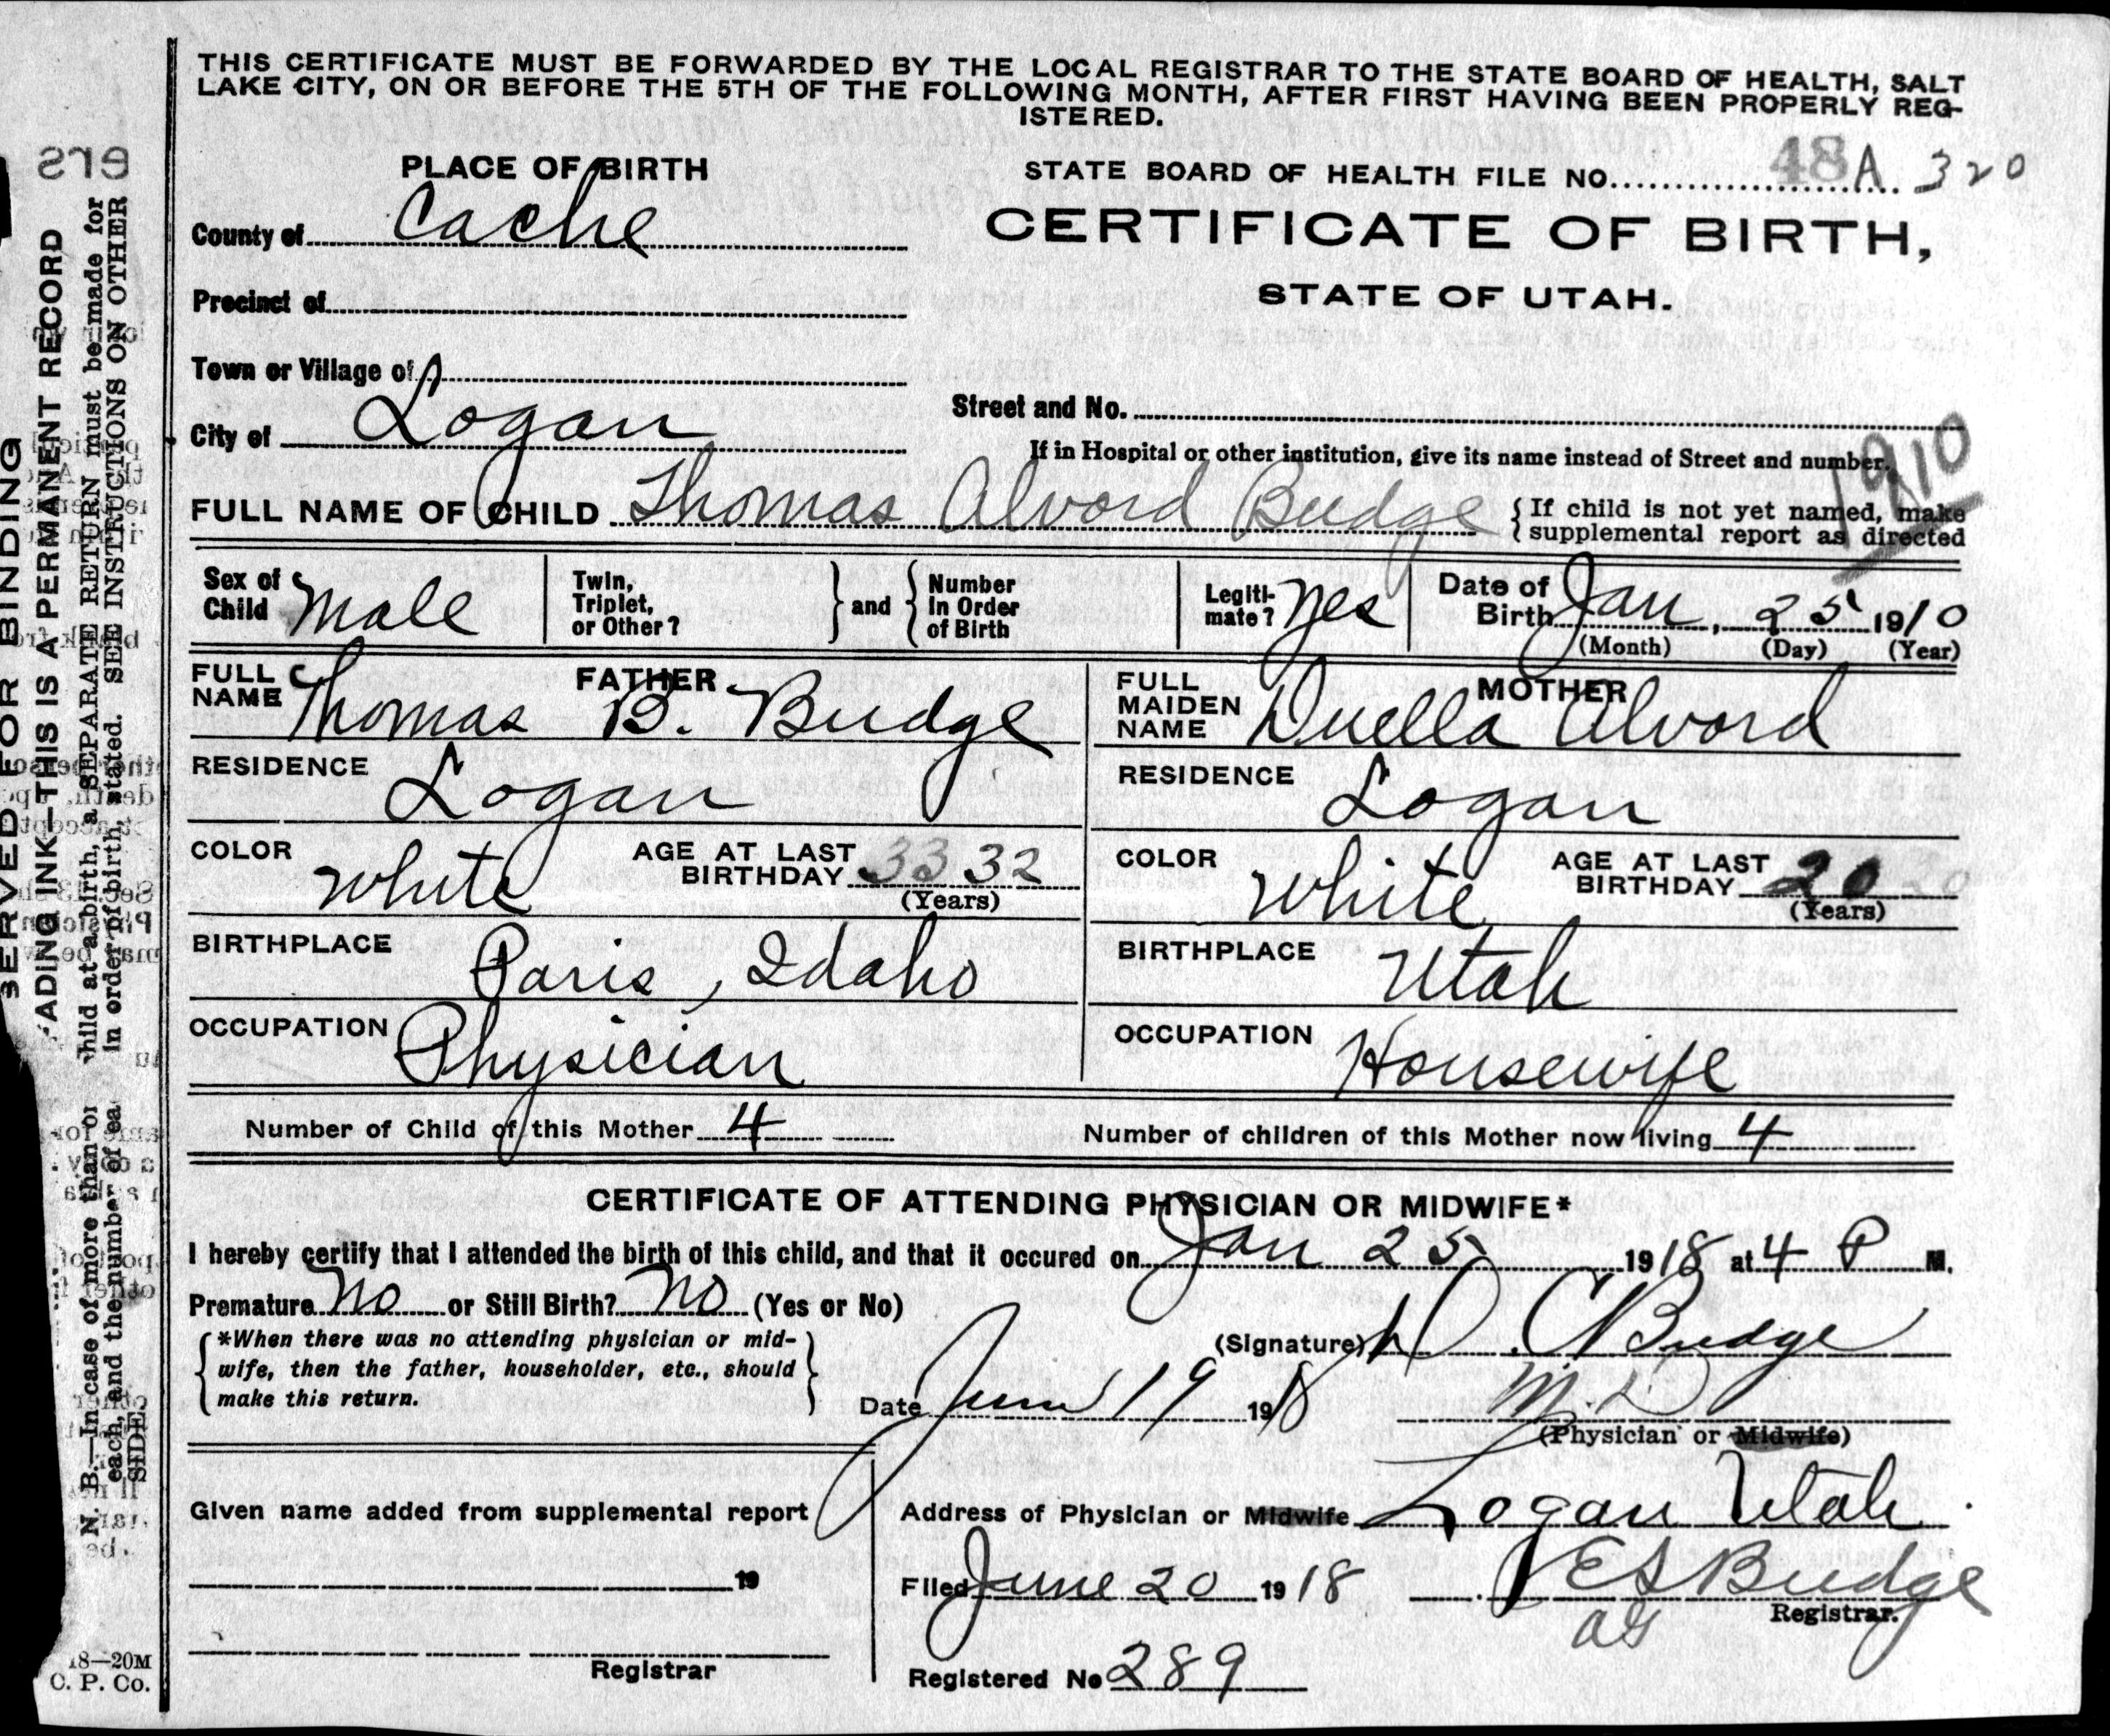 THIS CERTIFICATE MUST BE FORWARDED BY THE LOCAL REGISTRAR TO THE STATE BOARD OF HEALTH, SALT
LAKE CITY, ON OR BEFORE THE 5TH OF THE FOLLOWING MONTH, AFTER FIRST HAVING BEEN PROPERLY REG-
ISTERED.
PLACE OF BIRTH
STATE BOARD OF HEALTH FILE NO. 48A 320
County of Cache
CERTIFICATE OF BIRTH,
STATE OF UTAH.
Precinct of
Town or Village of
Street and No.
City of Logan
If in Hospital or other institution, give its name instead of Street and number.
1910
FULL NAME OF CHILD Thomas Alvord Budge { If child is not yet named, make
supplemental report as directed
Sex of Child Male
Twin, Triplet, or Other? } and { Number In Order of Birth
Legiti- mate? Yes
Date of Birth Jan, 25 1910
(Month) (Day) (Year)
FATHER
FULL NAME Thomas B. Budge
RESIDENCE Logan
COLOR White AGE AT LAST BIRTHDAY 33 32
(Years)
BIRTHPLACE Paris, Idaho
OCCUPATION Physician
MOTHER
FULL MAIDEN NAME Duella Alvord
RESIDENCE Logan
COLOR White AGE AT LAST BIRTHDAY 20 20
(Years)
BIRTHPLACE Utah
OCCUPATION Housewife
Number of Child of this Mother 4 Number of children of this Mother now living 4
CERTIFICATE OF ATTENDING PHYSICIAN OR MIDWIFE*
I hereby certify that I attended the birth of this child, and that it occured on Jan 25 1918 at 4 P M.
Premature No or Still Birth? No (Yes or No)
{ *When there was no attending physician or mid-
wife, then the father, householder, etc., should
make this return. }
(Signature) D. C Budge
Date June 19 1918 M.D
(Physician or Midwife)
Given name added from supplemental report
19
Registrar
Address of Physician or Midwife Logan Utah.
Filed June 20 1918 E S Budge
Registrar.
Registered No 289
SERVED FOR BINDING
ADING INK—THIS IS A PERMANENT RECORD
N. B.—In case of more than or hild at a birth, a SEPARATE RETURN must be made for
each, and the number of ea in order of birth, stated. SEE INSTRUCTIONS ON OTHER
SIDE
18—20M
C. P. Co.